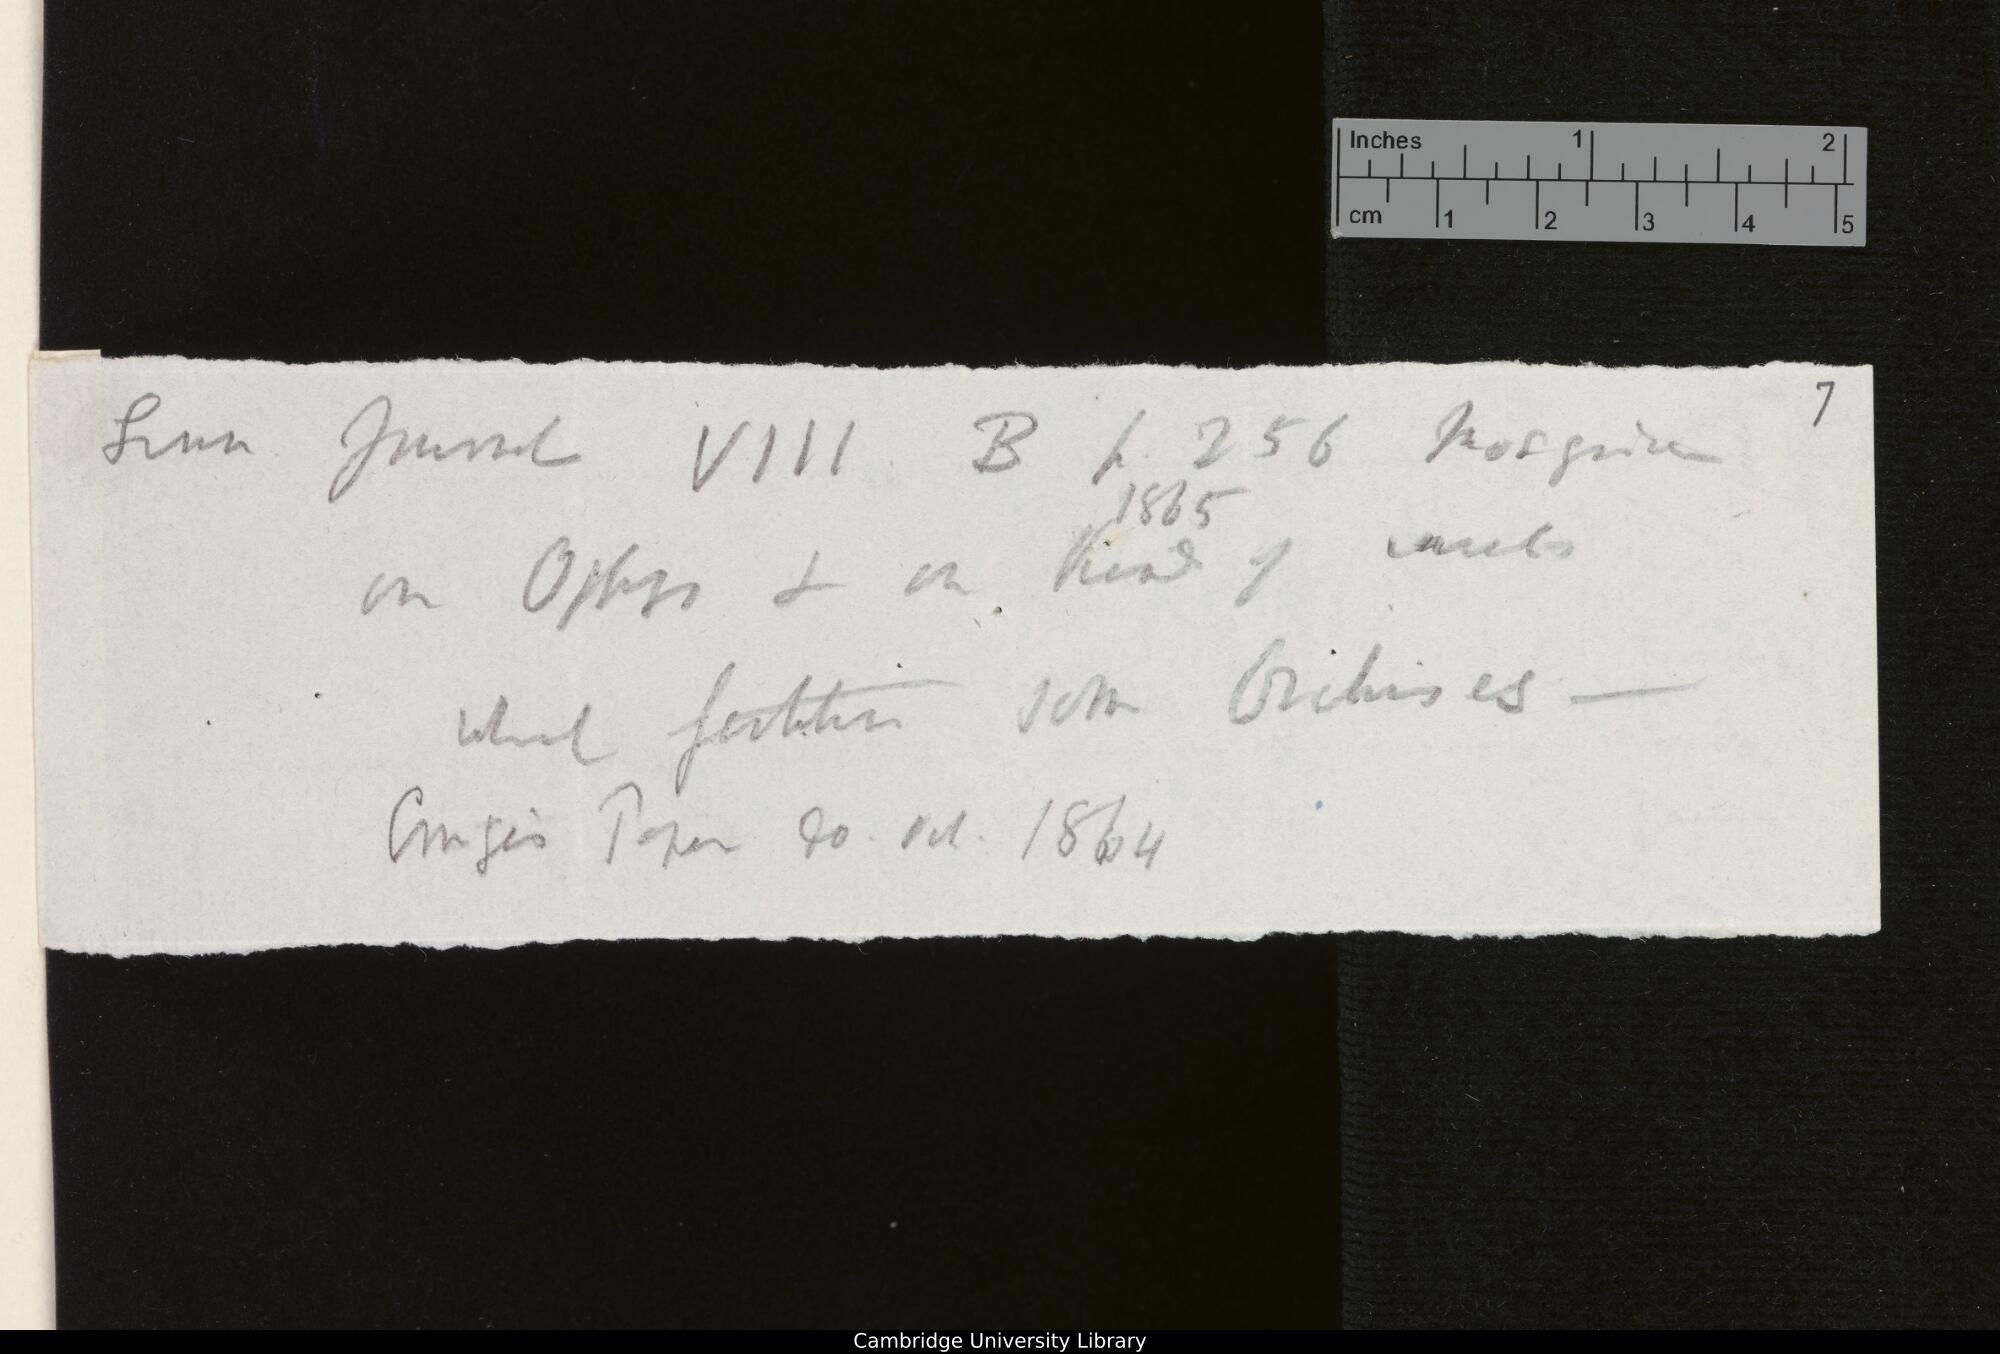 Inches 1 2
cm 1 2 3 4 5
7
Linn Journal VIII B p. 256 Moggridge
1865
on Ophrys & on kind of insects
which fertilise some Orchises —
Crugers Paper do. vol. 1864
Cambridge University Library